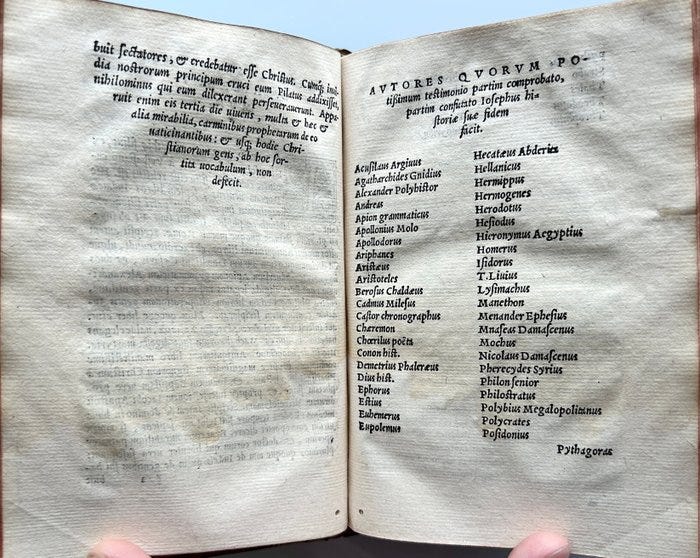 buit sectatores, & credebatur esse Christus. Cumq; inui-
dia nostrorum principum cruci eum Pilatus addixisset,
nihilominus qui eum dilexerant perseuerauerunt. Appa-
ruit enim eis tertia die uiuens, multa & hęc &
alia mirabilia, carminibus prophetarum de eo
uaticinantibus: & usq; hodie Chri-
stianorum gens, ab hoc sor-
tita uocabulum, non
defecit.
AVTORES QVORVM PO-
tissimum testimonio partim comprobato,
partim confutato Iosephus hi-
storiæ suæ fidem
facit.
Acusilaus Argiuus
Agatharchides Gnidius
Alexander Polyhistor
Andreas
Apion grammaticus
Apollonius Molo
Apollodorus
Ariphanes
Aristæus
Aristoteles
Berosus Chaldæus
Cadmus Milesius
Castor chronographus
Chæremon
Chœrilus poëta
Conon hist.
Demetrius Phalereus
Dius hist.
Ephorus
Estius
Euhemerus
Eupolemus
Hecatæus Abderita
Hellanicus
Hermippus
Hermogenes
Herodotus
Hesiodus
Hieronymus Aegyptius
Homerus
Isidorus
T. Liuius
Lysimachus
Manethon
Menander Ephesius
Mnaseas Damascenus
Mochus
Nicolaus Damascenus
Pherecydes Syrius
Philon senior
Philostratus
Polybius Megalopolitanus
Polycrates
Posidonius
Pythagoras